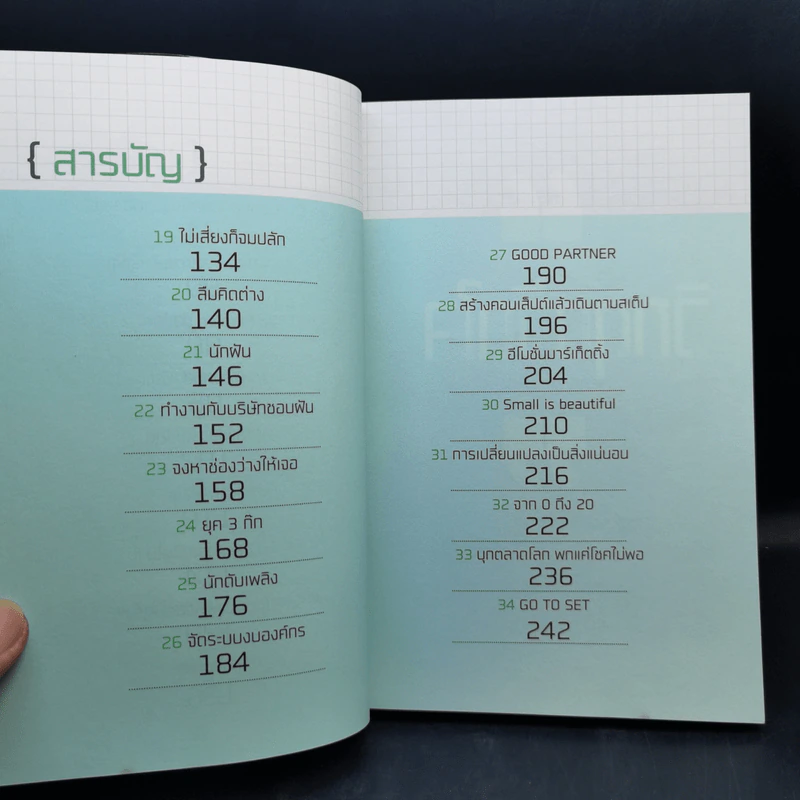 { สารบัญ }
19 ไม่เสี่ยงก็จมปลัก
134
20 ลืมคิดต่าง
140
21 นักฝัน
146
22 ทำงานกับบริษัทชอบฝัน
152
23 จงหาช่องว่างให้เจอ
158
24 ยุค 3 ก๊ก
168
25 นักดับเพลิง
176
26 จัดระบบงบองค์กร
184
27 GOOD PARTNER
190
28 สร้างคอนเส็ปต์แล้วเดินตามสเต็ป
196
29 อีโมชั่นมาร์เก็ตติ้ง
204
30 Small is beautiful
210
31 การเปลี่ยนแปลงเป็นสิ่งแน่นอน
216
32 จาก 0 ถึง 20
222
33 บุกตลาดโลก พกแค่โชคไม่พอ
236
34 GO TO SET
242